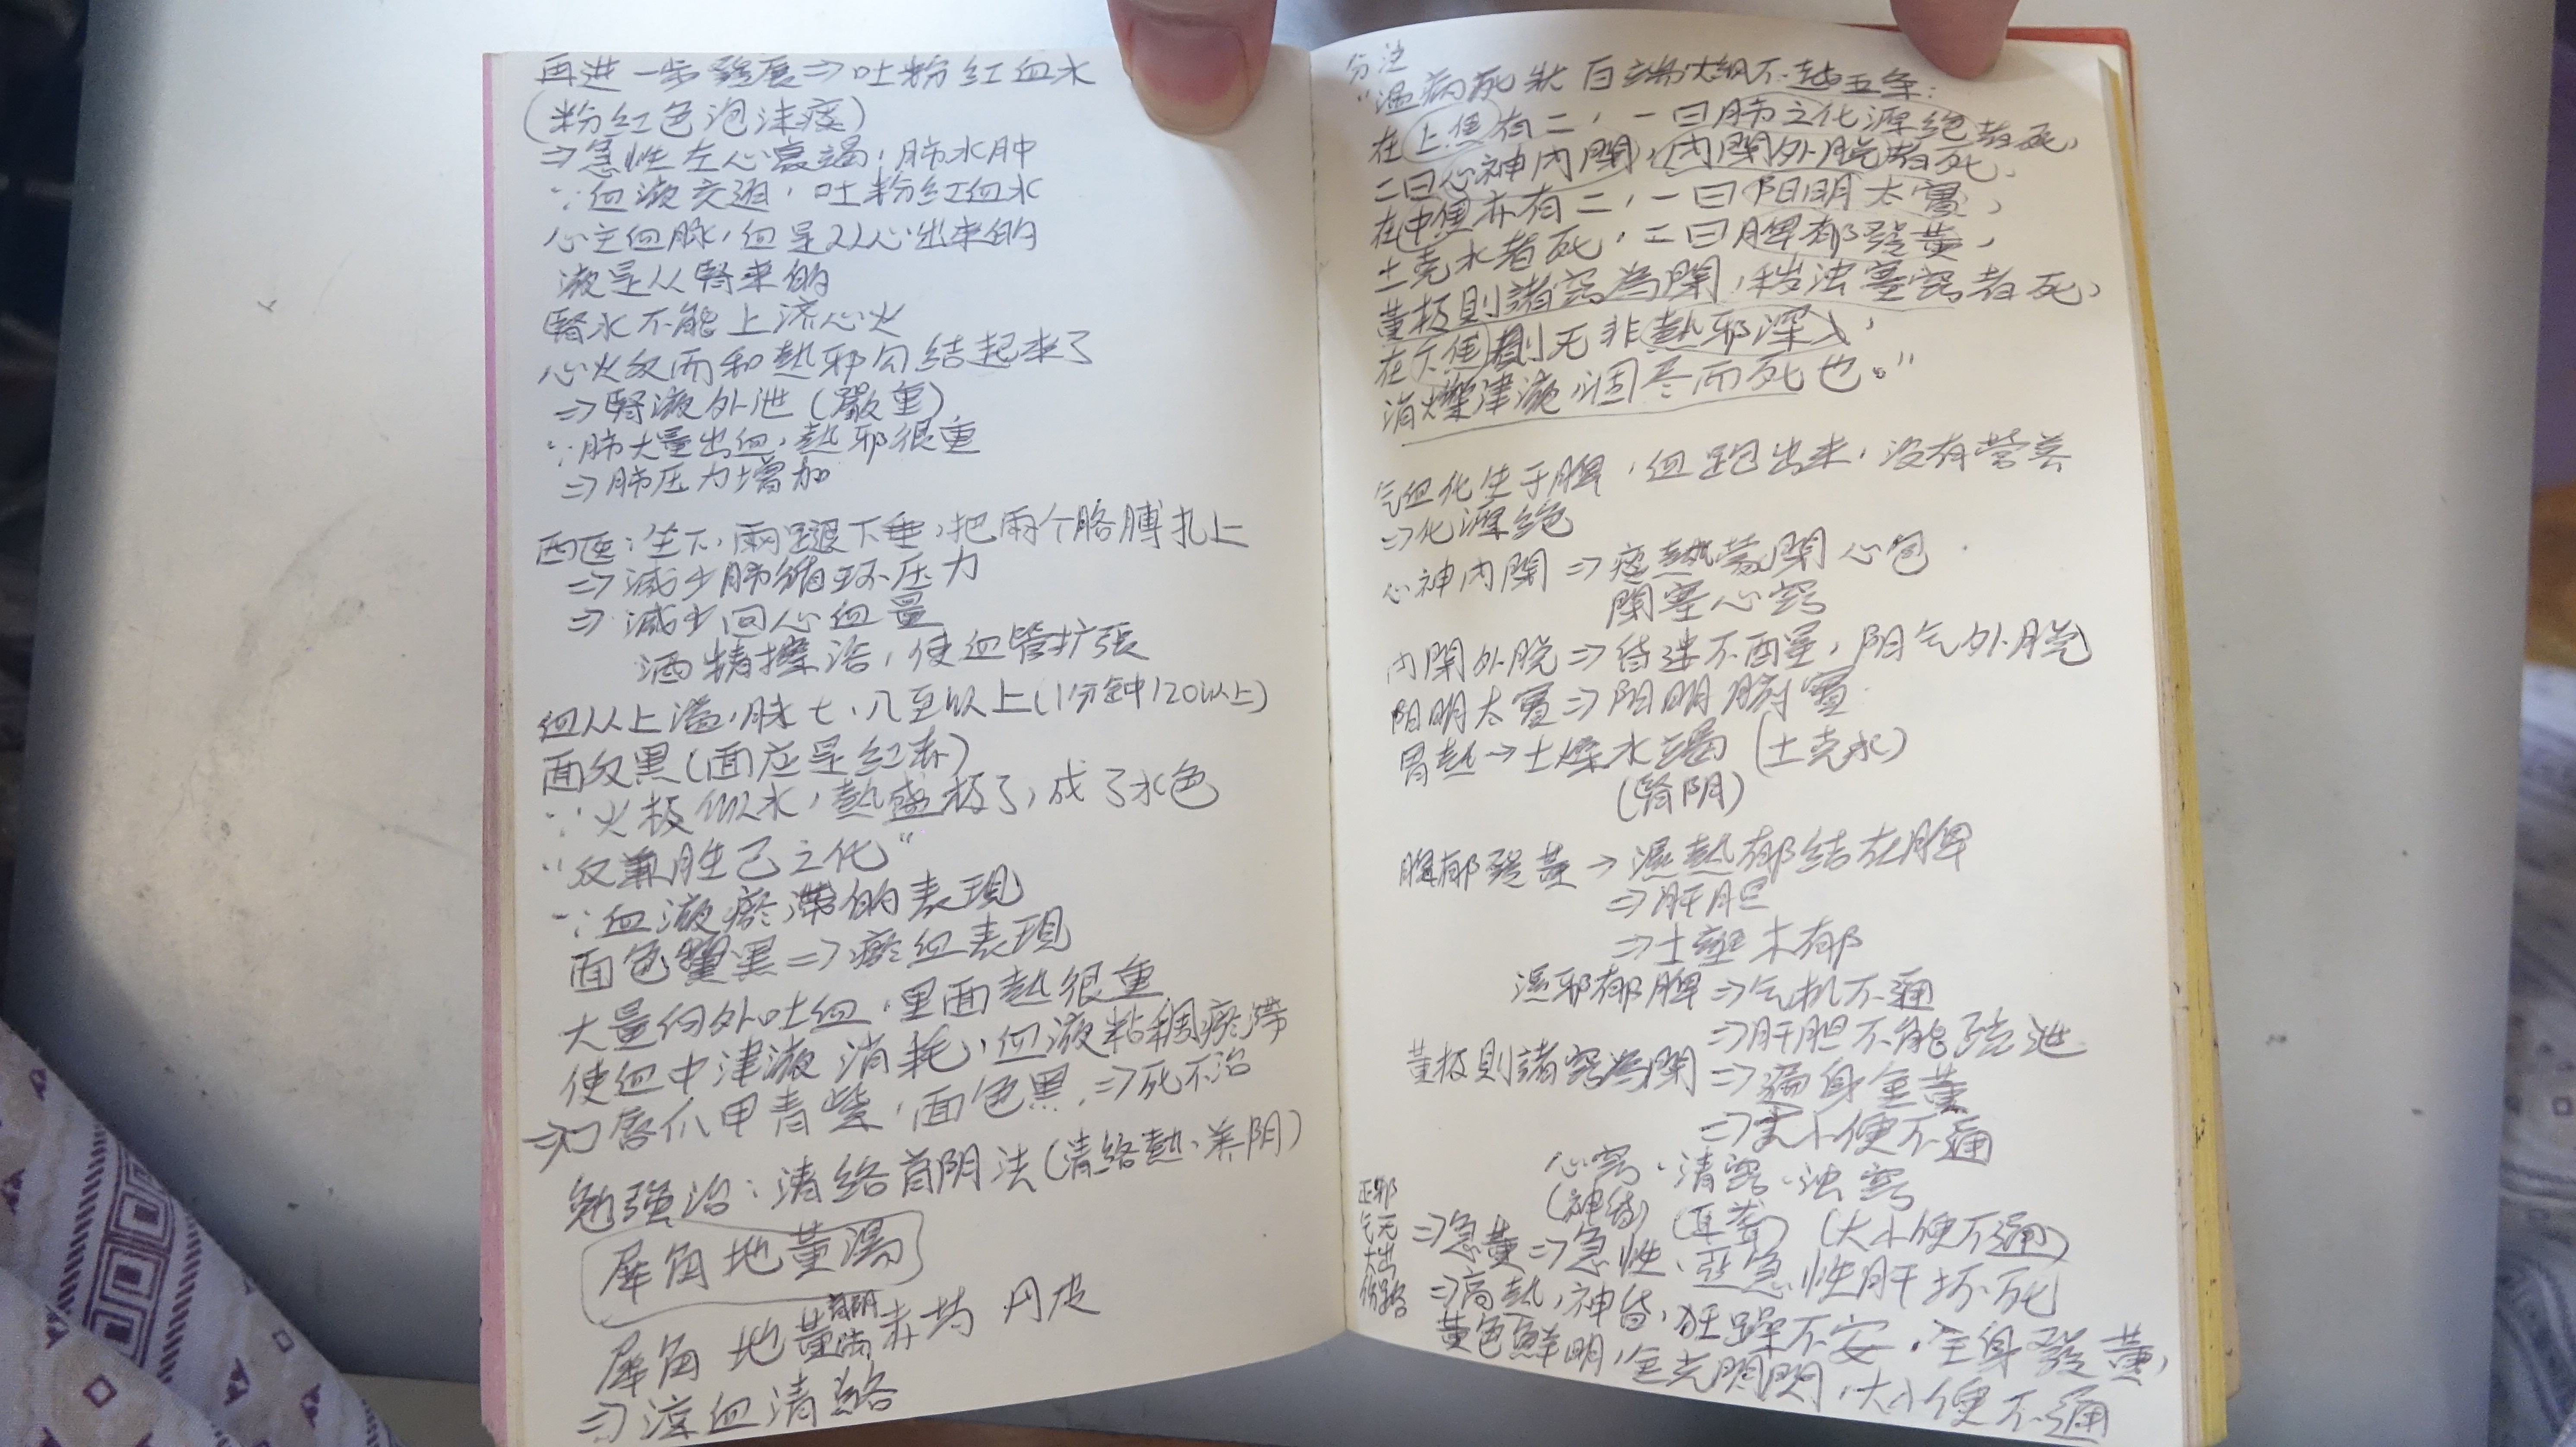 再进一步發展⇒吐粉红血水
(粉红色泡沫痰)
⇒急性左心衰竭,肺水肿
∵血液交迫,吐粉红血水
心主血脉,血是从心出来的
液是从腎来的
腎水不能上济心火
心火反而和熱邪勾结起来了
⇒腎液外泄(嚴重)
∵肺大量出血,熱邪很重
⇒肺压力增加
西医:坐下,兩腿下垂,把兩个胳膊扎上
⇒減少肺循环压力
⇒減少回心血量
酒精擦浴,使血管扩張
血从上溢,脉七、八至以上(1分钟120以上)
面反黑(面应是红赤)
∵火极似水,熱盛极了,成了水色
“反兼胜己之化”
∵血液瘀滯的表現
面色黧黑⇒瘀血表現
大量向外吐血,里面熱很重
使血中津液消耗,血液粘稠瘀滯
⇒口唇爪甲青紫,面色黑,⇒死不治
勉強治:清络育阴法(清络熱、养阴)
犀角地黄湯
犀角 地黄 赤芍 丹皮
⇒涼血清络
分注
“温病死狀百端大纲不越五条:
在上焦有二,一曰肺之化源绝者死,
二曰心神内閉,内閉外脱者死.
在中焦亦有二,一曰阳明太實,
土克水者死,二曰脾郁發黄,
黄极則諸窍為閉,秽浊塞窍者死,
在下焦則无非熱邪深入,
消爍津液,涸尽而死也。”
气血化生于脾,血跑出来,没有营养
⇒化源绝
心神内閉⇒痰熱蒙閉心包
閉塞心窍
内閉外脱⇒昏迷不醒,阳气外脱
阳明太實⇒阳明腑實
胃熱→土燥水竭(土克水)
(腎阴)
脾郁發黄→濕熱郁结在脾
⇒肝胆
⇒土壅木郁
湿邪郁脾⇒气机不通
⇒肝胆不能疏泄
黄极則諸窍為閉⇒遍身金黄
⇒大小便不通
心窍、清窍、浊窍
(神昏) (耳聋) (大小便不通)
⇒急黄⇒急性、亚急性肝坏死
⇒高熱,神昏,狂躁不安,全身發黄,
黄色鲜明,金光閃閃,大小便不通
邪无出路
正气大伤